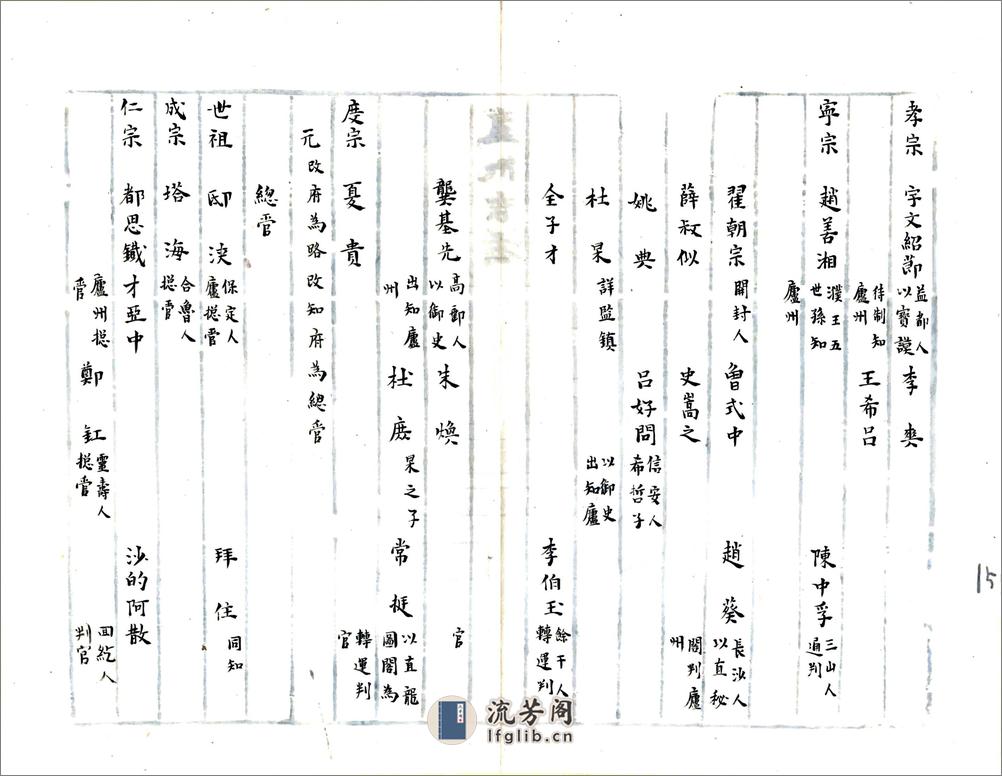 孝宗 宇文紹節 益都人以寶謨待制知廬州 李奭
王希呂
寧宗 趙善湘 濮王五世孫知廬州 陳中孚 三山人通判
翟朝宗 開封人 魯式中 趙葵 長沙人以直秘閣判廬州
薛叔似 史嵩之
姚典 呂好問 信安人希哲子
杜杲 詳監鎮 以御史出知廬
全子才 李伯玉 餘干人轉運判
龔基先 高郵人以御史出知廬州 朱煥 官
杜庶 杲之子 常挺 以直龍圖閣為轉運判官
度宗 夏貴
元改府為路改知府為總管
總管
世祖 邸浹 保定人廬摠管 拜住 同知
成宗 塔海 合魯人摠管
仁宗 都思鐵才亞中 廬州摠管 沙的阿散 回紇人判官
鄭釭 靈壽人摠管
15
流芳阁
lfglib.cn